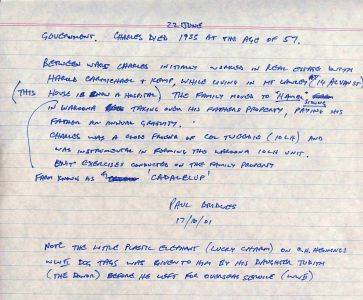 22 JUNE
GOVERNMENT. CHARLES DIED 1935 AT THE AGE OF 57.
BETWEEN WARS CHARLES INITIALLY WORKED IN REAL ESTATE WITH
HAROLD CARMICHAEL & KEMP, WHILE LIVING IN MT LAWLEY AT 14 ALVAN ST
(THIS HOUSE IS NOW A HOSPITAL) THE FAMILY MOVED TO
IN WAROONA TAKING OVER HIS FATHERS PROPERTY, PAYING HIS
FATHER AN ANNUAL GRATUITY.
CHARLES WAS A GOOD FRIEND OF COL (10LH) AND
WAS INSTRUMENTAL IN FORMING THE WAROONA 10LH UNIT.
UNIT EXERCISES CONDUCTED ON THE FAMILY PROPERTY
FARM KNOWN AS 'CADALELUP'
PAUL BRIDGES
17/10/01
NOTE THE LITTLE PLASTIC ELEPHANT (LUCKY CHARM) ON HENNINGS
WWII DOG TAGS WAS GIVEN TO HIM BY HIS DAUGHTER JUDITH
(THE DONOR) BEFORE HE LEFT FOR OVERSEAS SERVICE (WWII)